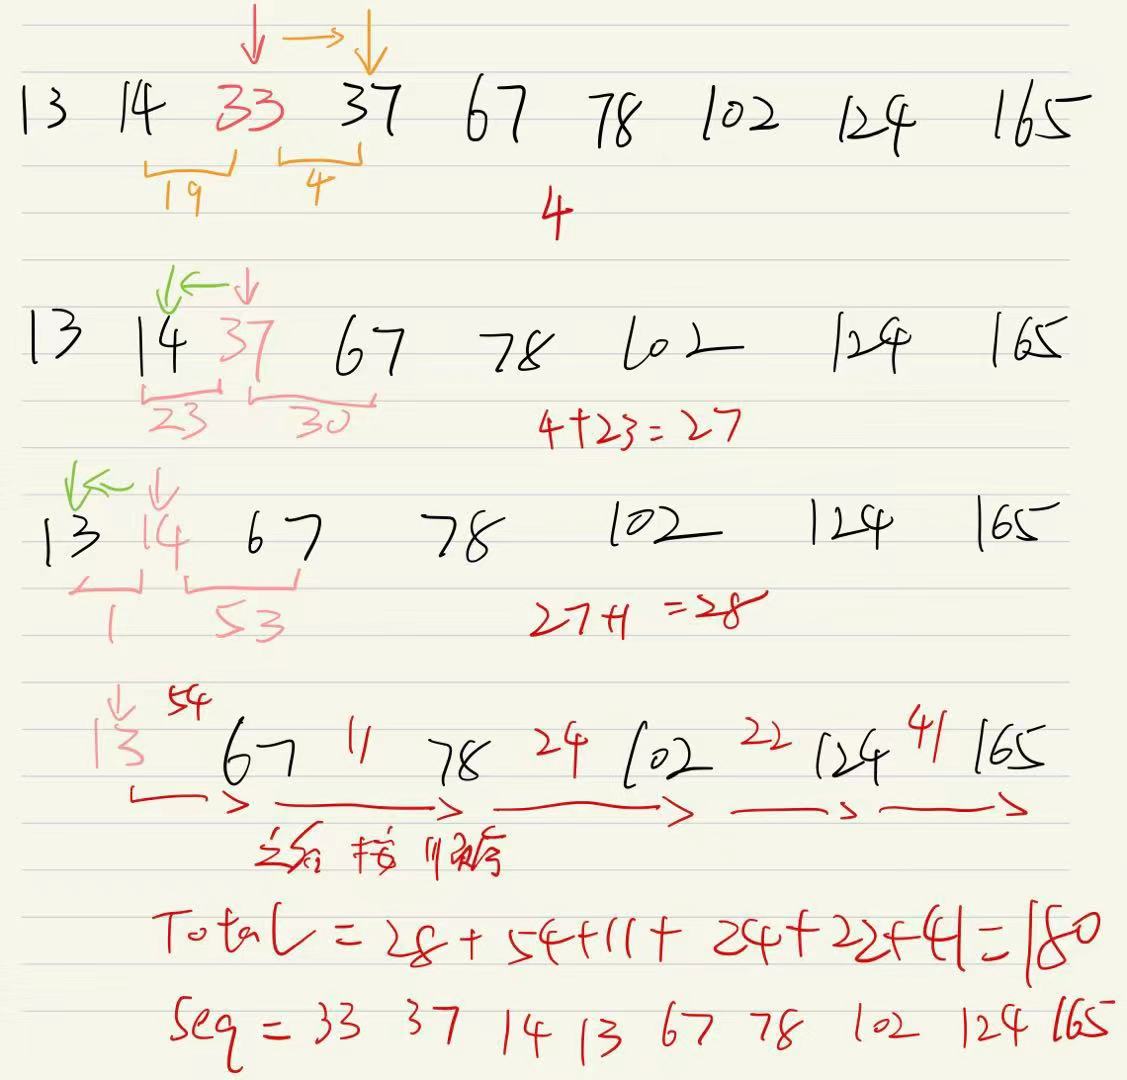 13 14 33 37 67 78 102 124 165
19 4
4
13 14 37 67 78 102 124 165
23 30
4+23=27
13 14 67 78 102 124 165
1 53
27+1=28
13 54 67 11 78 24 102 22 124 41 165
之后 按 顺序
Total = 28+54+11+24+22+41=180
Seq = 33 37 14 13 67 78 102 124 165